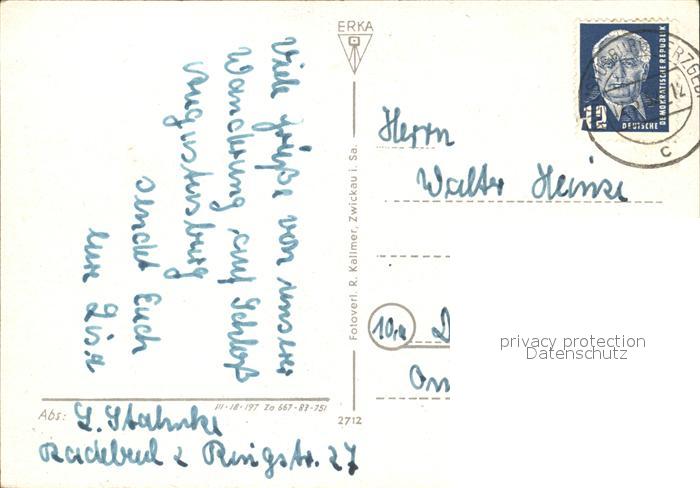 ERKA
Viele Grüße von unserer
Wanderung auf Schloß
Augustusburg
sendet Euch
Eure Lisa
Abs: L. Stahnke
Radebeul 2 Ringstr. 27
III-18-197 Za 667-83-751
2712
Fotoverl. R. Kallmer, Zwickau i. Sa.
DEUTSCHE DEMOKRATISCHE REPUBLIK
12
c
Herrn
Walter Heinze
10a D
privacy protection
Datenschutz